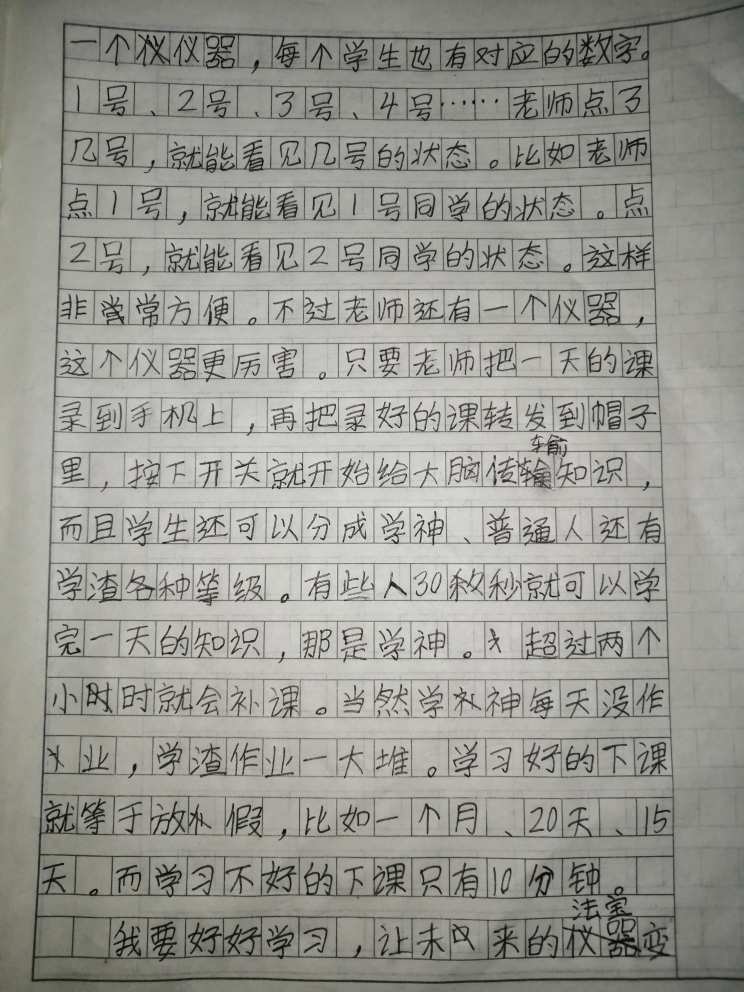 一个仪仪器，每个学生也有对应的数字。
1号、2号、3号、4号……老师点了
几号，就能看见几号的状态。比如老师
点1号，就能看见1号同学的状态。点
2号，就能看见2号同学的状态。这样
非常常方便。不过老师还有一个仪器，
这个仪器更厉害。只要老师把一天的课
录到手机上，再把录好的课转发到帽子
里，按下开关就开始给大脑传输知识，
而且学生还可以分成学神、普通人还有
学渣各种等级。有些人30秒就可以学
完一天的知识，那是学神。超过两个
小时时就会补课。当然学神每天没作
业，学渣作业一大堆。学习好的下课
就等于放假，比如一个月、20天、15
天。而学习不好的下课只有10分钟。
法宝
我要好好学习，让未来的仪器变